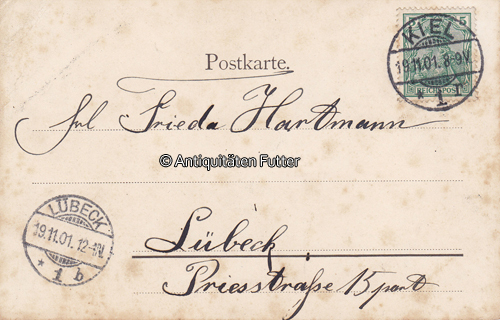 5
REICHSPOST
KIEL
19.11.01. 8-9V
1
Postkarte.
Frl Frieda Hartmann
© Antiquitäten Futter
LÜBECK
19.11.01. 12-1N.
* 1 b
Lübeck
Priesstraße 15 part